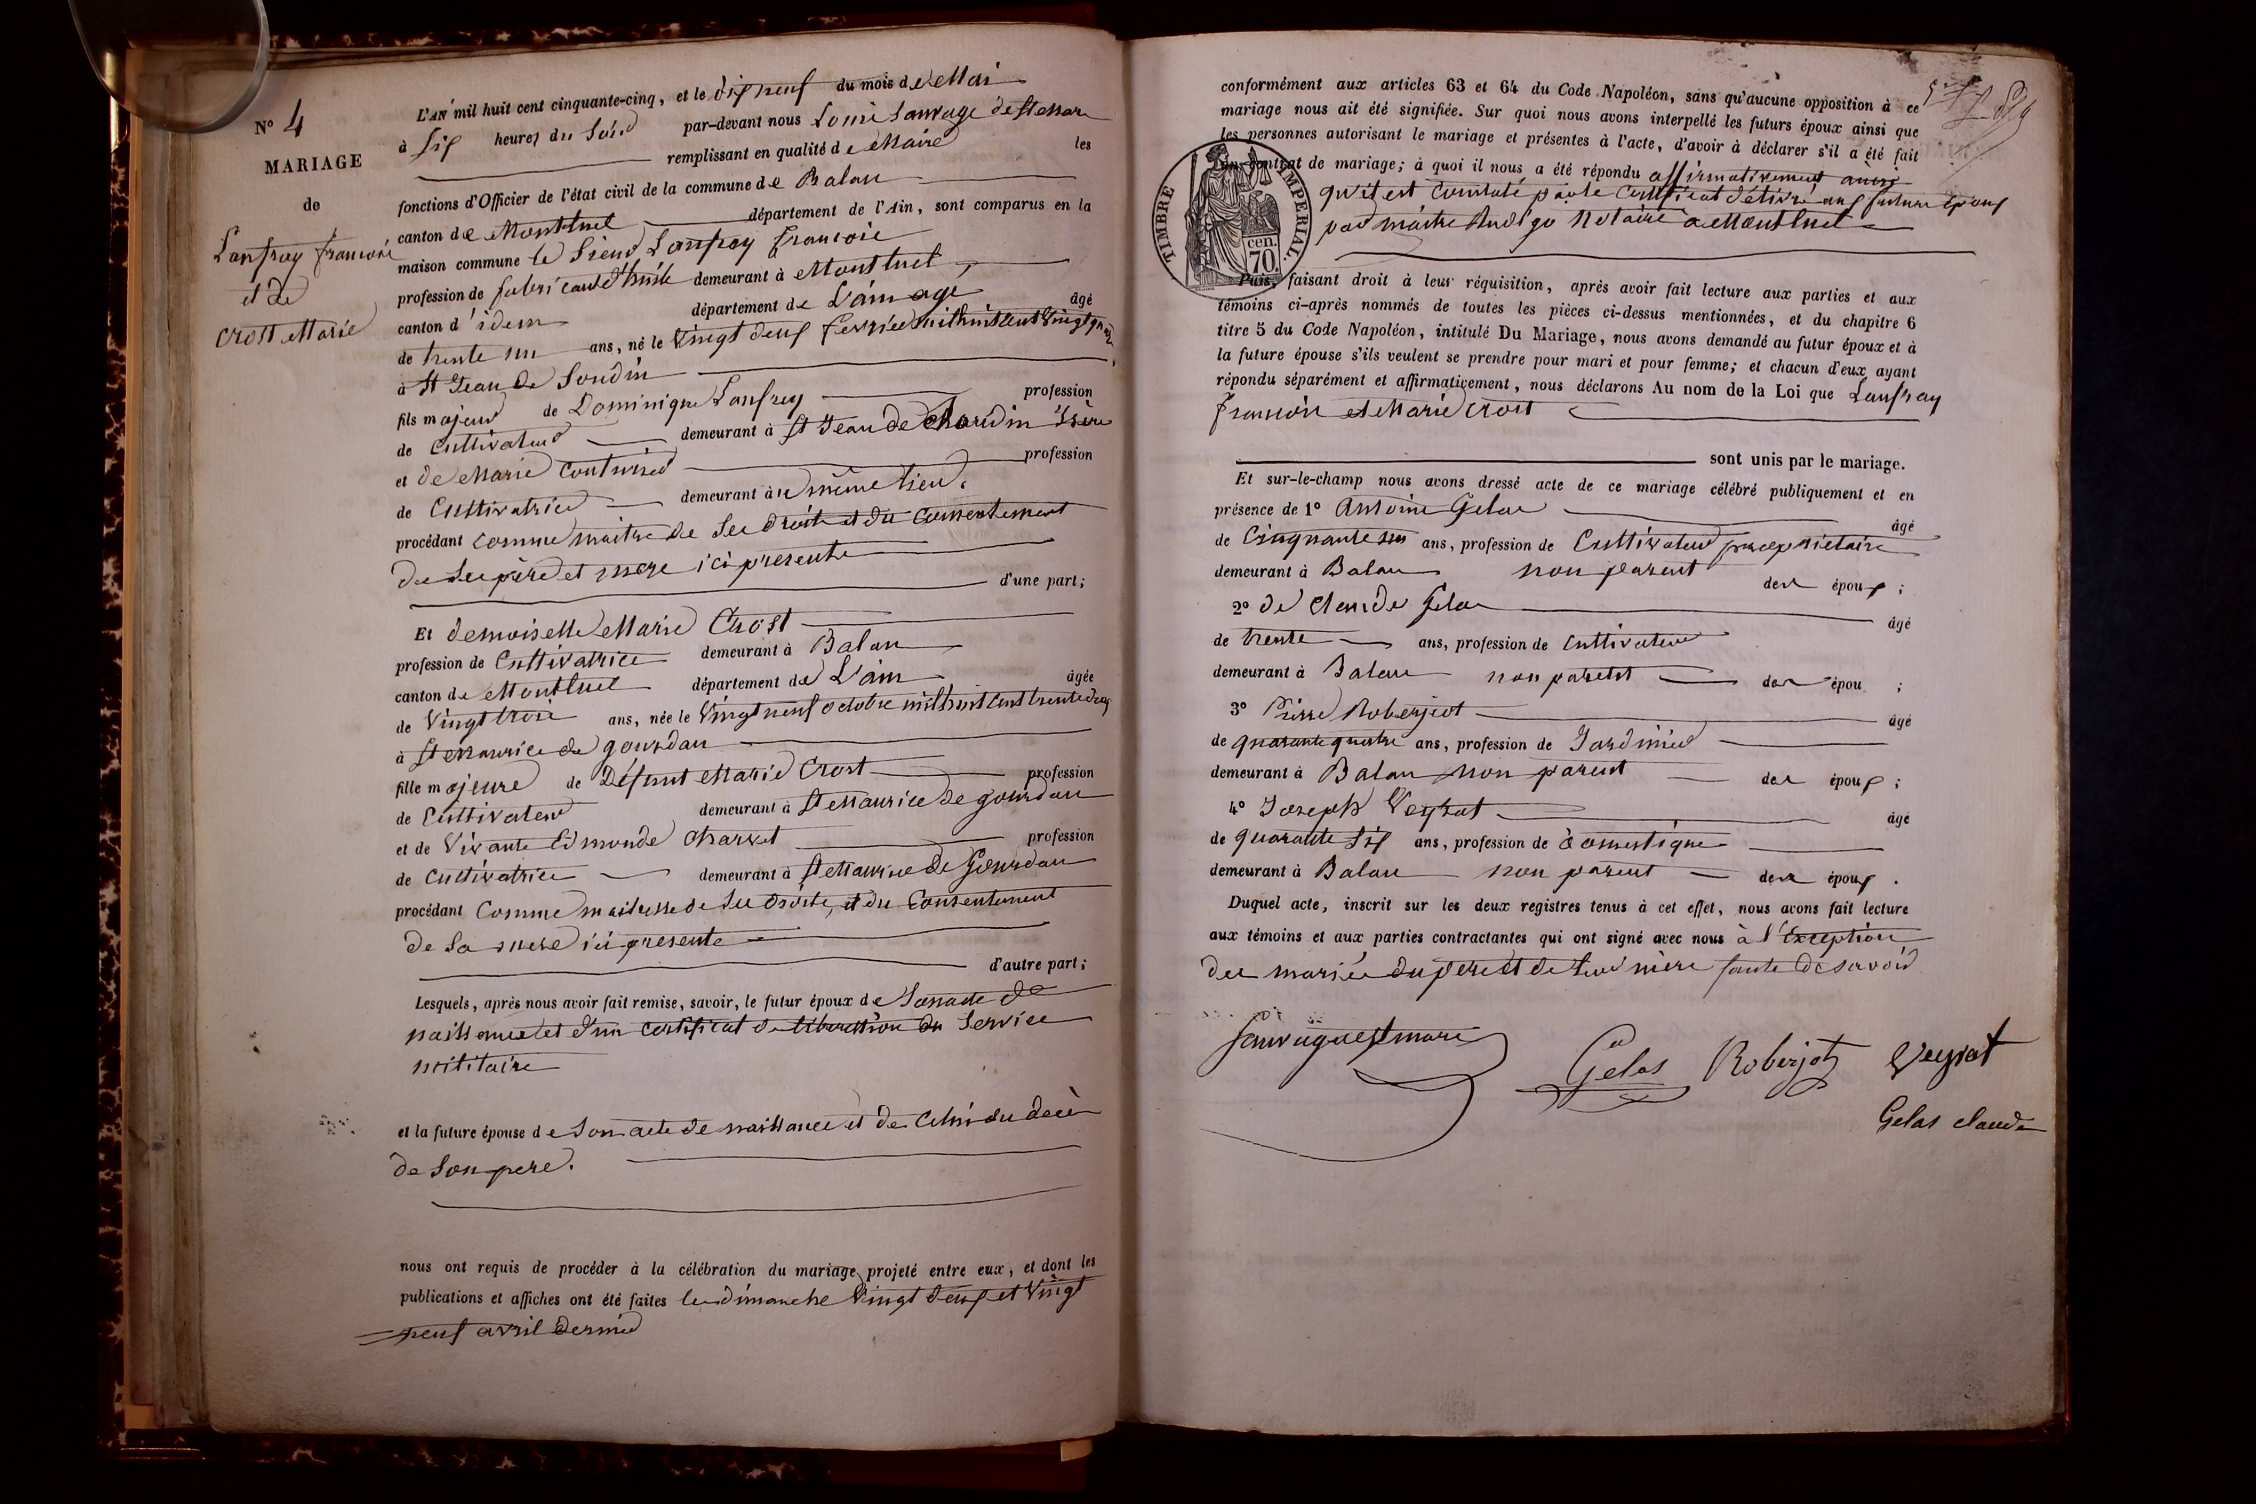 N° 4
MARIAGE
de
Lanfray françois
et de
Crost Marie
L'AN mil huit cent cinquante-cinq, et le dix neuf du mois de Mai
à six heures du soir par-devant nous Louis Sauvage de St Mare
remplissant en qualité de Maire les
fonctions d'Officier de l'état civil de la commune de Balan
canton de Montluel département de l'Ain, sont comparus en la
maison commune le Sieur Lanfray françois
profession de fabricant d'huile demeurant à Montluel
canton d'idem département de L'ain age âgé
de trente un ans, né le Vingt deux fevrier mil huit cent Vingt quatre
à St Jean de Soudin
fils majeur de Dominique Lanfrey profession
de Cultivateur demeurant à St Jean de Soudin Isère
et de Marie profession
de Cultivatrice demeurant àu même lieu.
procédant comme maitre de ses droits et du consentement
de ses père et mere ici presents
d'une part;
Et demoiselle Marie Crost
profession de Cultivatrice demeurant à Balan
canton de Montluel département de L'ain âgée
de Vingt trois ans, née le Vingt neuf octobre mil huit cent trente deux
à St Maurice de gourdan
fille majeure de Défunt Marie Crost profession
de Cultivateur demeurant à St Maurice de gourdan
et de Vivante Edmonde Charvet profession
de Cultivatrice demeurant à St Maurice de Gourdan
procédant Comme maitresse de ses droits, et du Consentement
de sa mere ici presente
d'autre part;
Lesquels, après nous avoir fait remise, savoir, le futur époux de Son acte de
naissance et d'un certificat de libération du Service
militaire
et la future épouse de Son acte de naissance et de Celui du decès
de Son pere.
nous ont requis de procéder à la célébration du mariage projeté entre eux, et dont les
publications et affiches ont été faites les dimanche Vingt deux et Vingt
neuf avril dernier
conformément aux articles 63 et 64 du Code Napoléon, sans qu'aucune opposition à ce
mariage nous ait été signifiée. Sur quoi nous avons interpellé les futurs époux ainsi que
les personnes autorisant le mariage et présentes à l'acte, d'avoir à déclarer s'il a été fait
un contrat de mariage; à quoi il nous a été répondu affirmativement ainsi
qu'il est constaté par le Certificat délivré aux futurs époux
par maître Audigo Notaire à Montluel
TIMBRE IMPERIAL.
70 cen.
Puis, faisant droit à leur réquisition, après avoir fait lecture aux parties et aux
témoins ci-après nommés de toutes les pièces ci-dessus mentionnées, et du chapitre 6
titre 5 du Code Napoléon, intitulé Du Mariage, nous avons demandé au futur époux et à
la future épouse s'ils veulent se prendre pour mari et pour femme; et chacun d'eux ayant
répondu séparément et affirmativement, nous déclarons Au nom de la Loi que Lanfray
françois et Marie Crost
sont unis par le mariage.
Et sur-le-champ nous avons dressé acte de ce mariage célébré publiquement et en
présence de 1° Antoine Gelas
âgé
de Cinquante six ans, profession de Cultivateur propriétaire
demeurant à Balan non parent des époux;
2° de Claude Gelas
âgé
de trente ans, profession de Cultivateur
demeurant à Balan non parent des épou ;
3° Pierre Roberjot
âgé
de quarante quatre ans, profession de Jardinier
demeurant à Balan non parent des époux;
4° Joseph Veyrat
âgé
de quarante six ans, profession de domestique
demeurant à Balan non parent des époux.
Duquel acte, inscrit sur les deux registres tenus à cet effet, nous avons fait lecture
aux témoins et aux parties contractantes qui ont signé avec nous à l'Exception
des mariés du pere et de leur mère faute de savoir
Gelas Roberjot Veyrat
Gelas claude